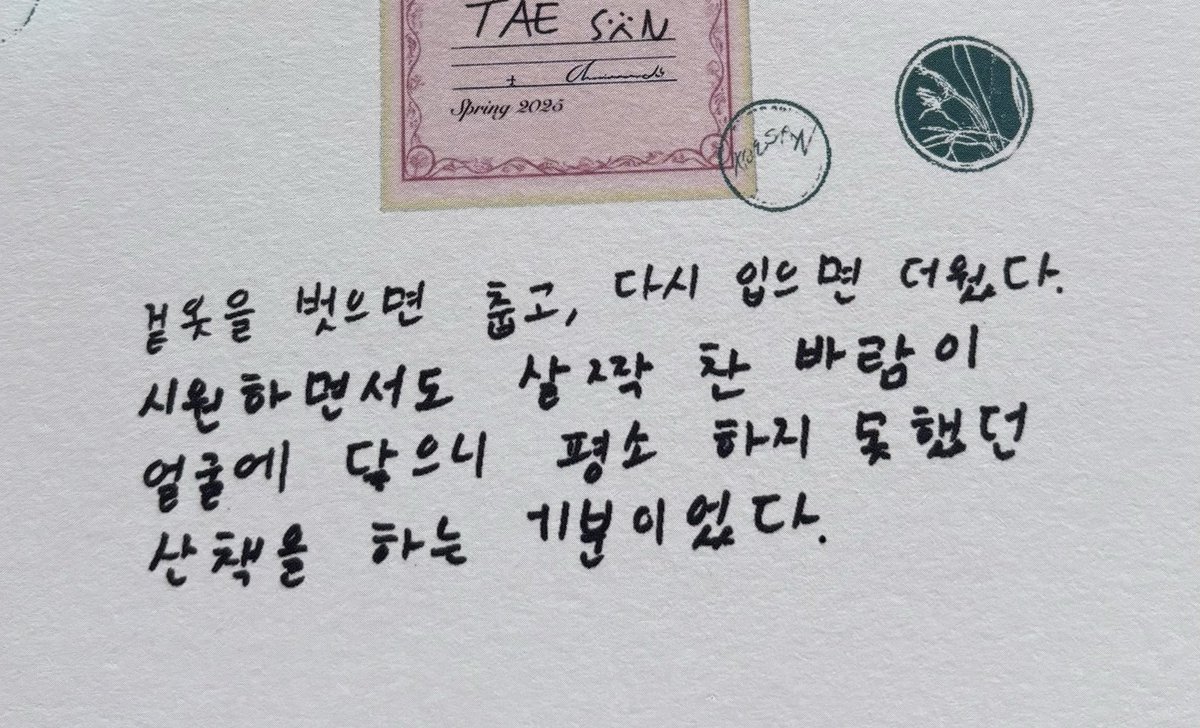 TAE SAN
Spring 2025
겉옷을 벗으면 춥고, 다시 입으면 더웠다.
시원하면서도 살그락 찬 바람이
얼굴에 닿으니 평소 하지 못했던
산책을 하는 기분이었다.